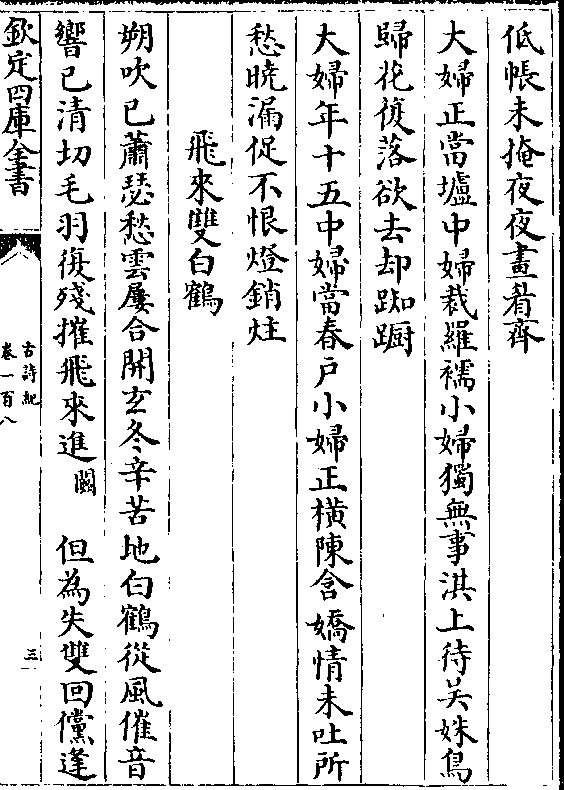 低帳未掩夜夜畫眉齊
大婦正當壚中婦裁羅襦小婦獨無事淇上待吴姝鳥
歸花復落欲去却踟蹰
大婦年十五中婦當春戸小婦正橫陳含嬌情未吐所
愁曉漏促不恨燈銷炷
飛來雙白鶴
朔吹已蕭瑟愁雲屢合開玄冬辛苦地白鶴從風催音
響已清切毛羽復殘摧飛來進闕 但為失雙回儻逢
欽定四庫全書
古詩紀
卷一百八
三